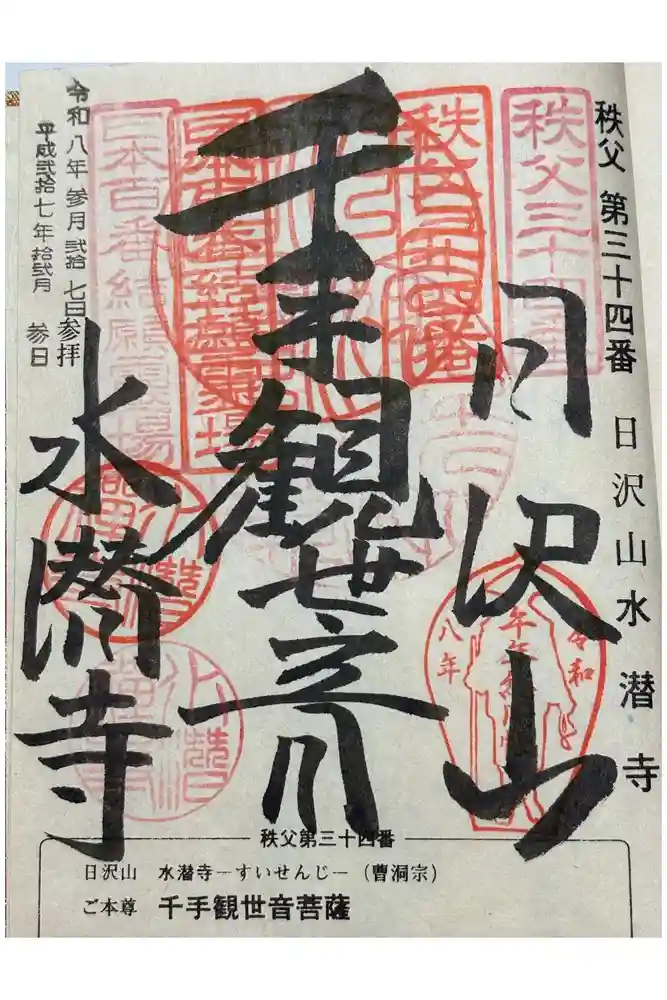 秩父 第三十四番 日沢山水潜寺
秩父三十四番
日沢山
千手観世音
水潜寺
日本百番結願霊場
令和八年参月弐拾七日参拝
平成弐拾七年拾弐月 参日
令和
八年
秩父第三十四番
日沢山 水潜寺－すいせんじ－（曹洞宗）
ご本尊 千手観世音菩薩